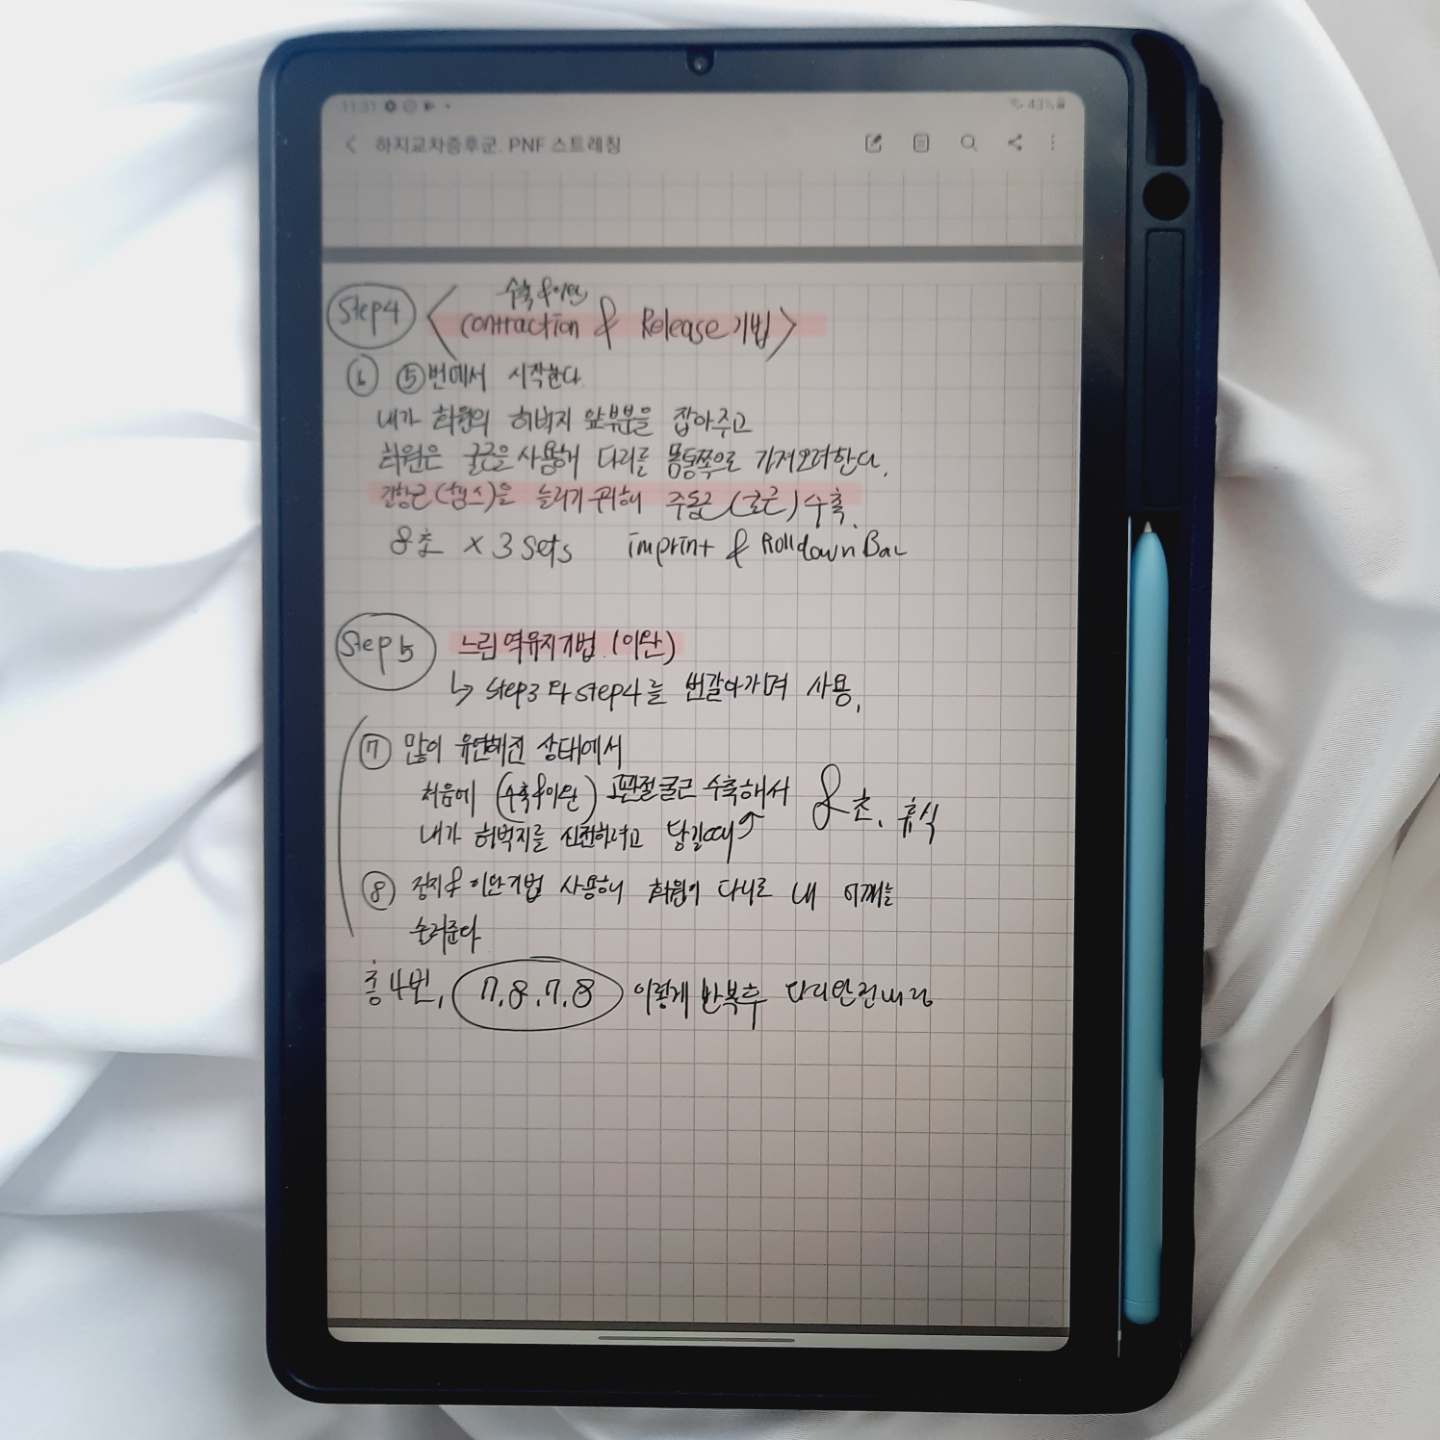 11:31
43%
하지교차증후군. PNF 스트레칭
Step4
수축&이완
<contraction & Release 기법>
⑥ ⑤번에서 시작한다
내가 회원의 허벅지 앞부분을 잡아주고
회원은 굴근을 사용해 다리를 몸통쪽으로 가져오려한다.
길항근(햄스)을 늘리기 위해 주동근(요근) 수축.
8초 x 3 sets imprint & Rolldown Bar
Step 5 느린 역유지기법. (이완)
↳ step3 와 step4를 번갈아가며 사용.
⑦ 많이 유연해진 상태에서
처음에 (수축&이완) 고관절굴근 수축해서 8초. 휴식
내가 허벅지를 신전하려고 당길때
⑧ 정지&이완기법 사용해 회원이 다리로 내 어깨를
눌러준다
총 4번, 7,8,7,8 이렇게 반복후 다리